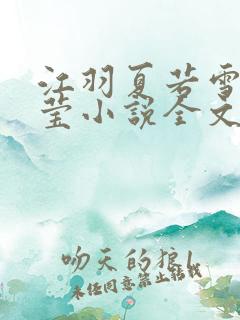 江羽夏若雪
莹小说全文
吻天的狼1
未经同意禁止转载